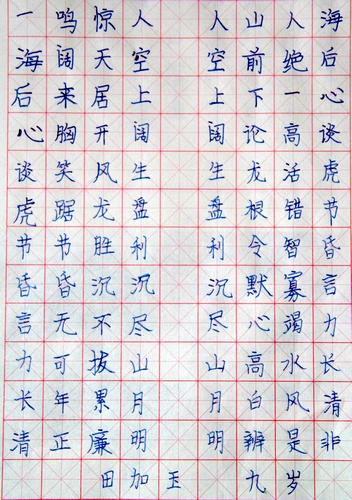 一鸣惊人 人山人海
海阔天空 空前绝后
后来居上 上下一心
心胸开阔 阔论高谈
谈笑风生 生龙活虎
虎踞龙盘 盘根错节
节节胜利 利令智昏
昏昏沉沉 沉默寡言
言无不尽 尽心竭力
力可拔山 山高水长
长年累月 月白风清
清正廉明 明辨是非
田加玉 九岁